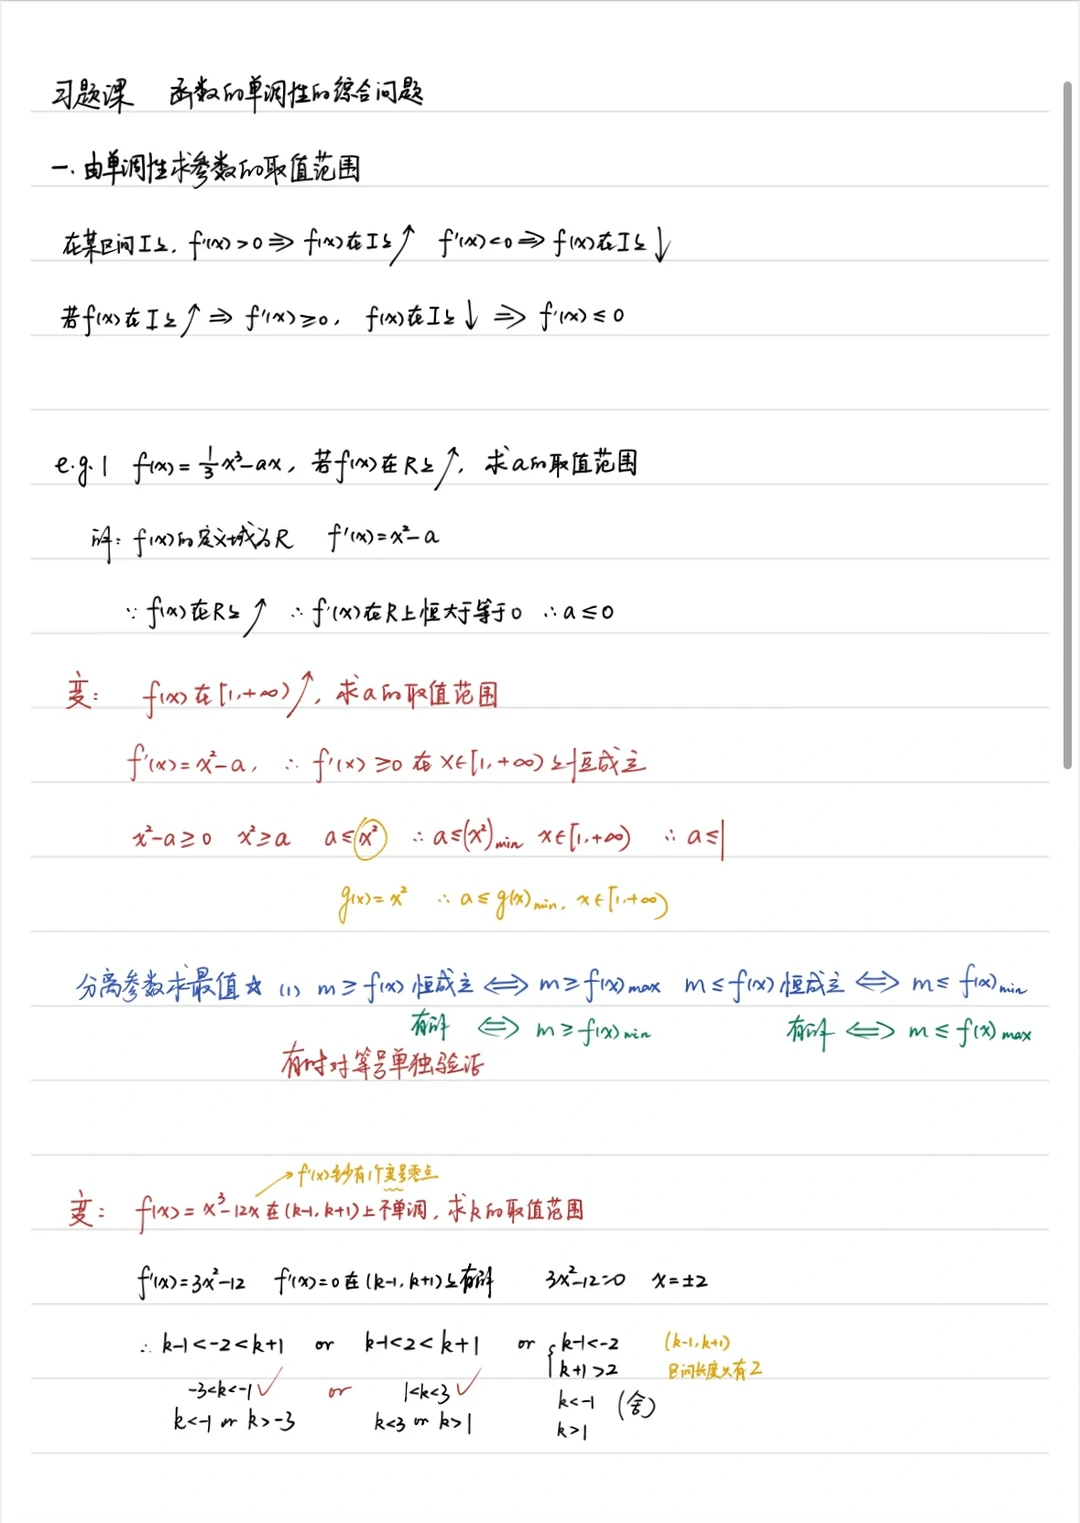 习题课 函数的单调性的综合问题
一.由单调性求参数的取值范围
在某区间I上, f'(x)>0⇒f(x)在I上↑ f'(x)<0⇒f(x)在I上↓
若f(x)在I上↑⇒f'(x)≥0, f(x)在I上↓⇒f'(x)≤0
e.g.1 f(x)=1/3x³-ax, 若f(x)在R上↑, 求a的取值范围
解: f(x)的定义域为R f'(x)=x²-a
∵f(x)在R上↑ ∴f'(x)在R上恒大于等于0 ∴a≤0
变: f(x)在[1,+∞)↑, 求a的取值范围
f'(x)=x²-a, ∴f'(x)≥0在x∈[1,+∞)上恒成立
x²-a≥0 x²≥a a≤x² ∴a≤(x²)min x∈[1,+∞) ∴a≤1
g(x)=x² ∴a≤g(x)min, x∈[1,+∞)
分离参数求最值☆ (1) m≥f(x)恒成立⇔m≥f(x)max m≤f(x)恒成立⇔m≤f(x)min
有解⇔m≥f(x)min 有解⇔m≤f(x)max
有时对等号单独验证
→f'(x)至少有1个变号零点
变: f(x)=x³-12x在(k-1,k+1)上不单调, 求k的取值范围
f'(x)=3x²-12 f'(x)=0在(k-1,k+1)上有解 3x²-12=0 x=±2
∴k-1<-2<k+1 or k-1<2<k+1 or { k-1<-2 (k-1,k+1)
k+1>2 区间长度只有2
-3<k<-1✓ or 1<k<3✓ k<-1 (舍)
k<-1 or k>-3 k<3 or k>1 k>1